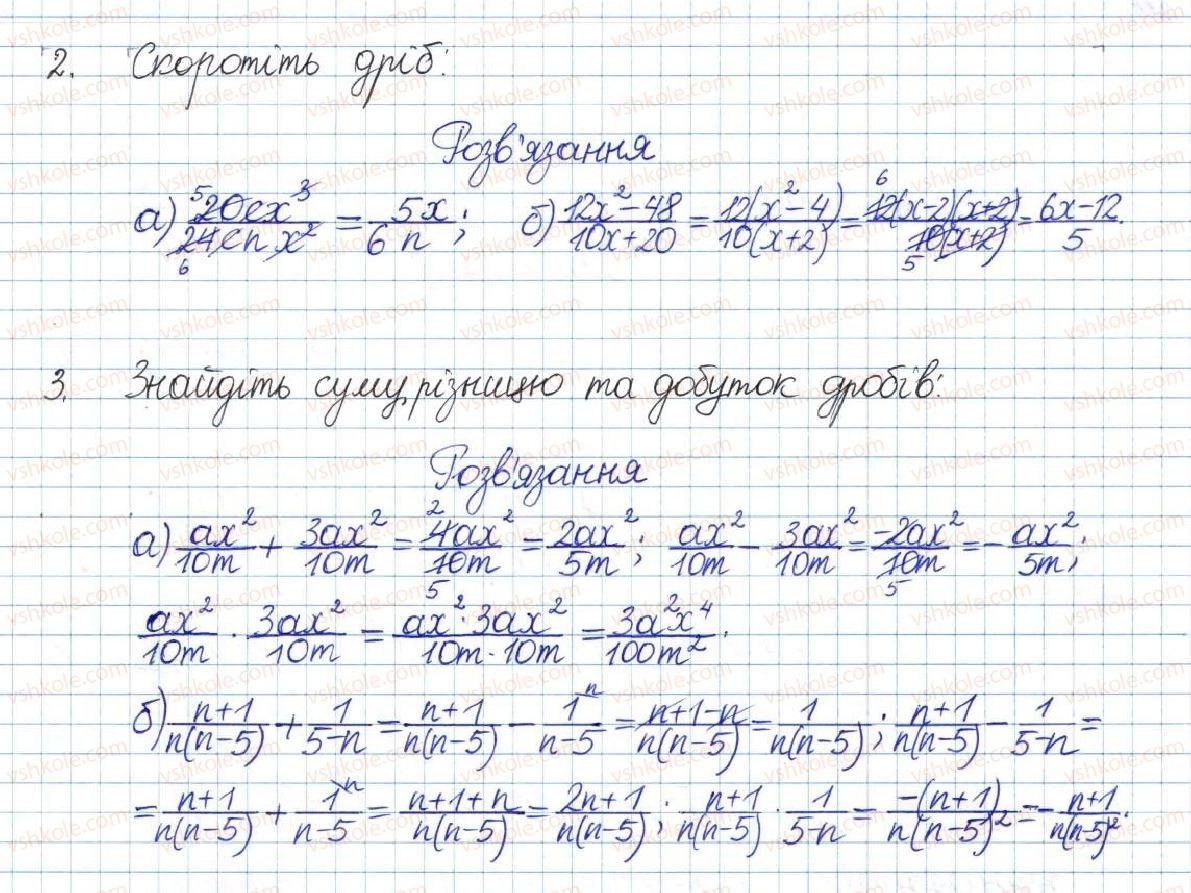 2. Скоротіть дріб:
Розв'язання
а) 20cx³/24cnx² = 5x/6n; б) 12x²-48/10x+20 = 12(x²-4)/10(x+2) = 12(x-2)(x+2)/10(x+2) = 6x-12/5.
3. Знайдіть суму, різницю та добуток дробів:
Розв'язання
а) ax²/10m + 3ax²/10m = 4ax²/10m = 2ax²/5m; ax²/10m - 3ax²/10m = -2ax²/10m = -ax²/5m;
ax²/10m · 3ax²/10m = ax²·3ax²/10m·10m = 3a²x⁴/100m².
б) n+1/n(n-5) + 1/5-n = n+1/n(n-5) - 1/n-5 = n+1-n/n(n-5) = 1/n(n-5); n+1/n(n-5) - 1/5-n =
= n+1/n(n-5) + 1/n-5 = n+1+n/n(n-5) = 2n+1/n(n-5); n+1/n(n-5) · 1/5-n = -(n+1)/n(n-5)² = -n+1/n(n-5)².